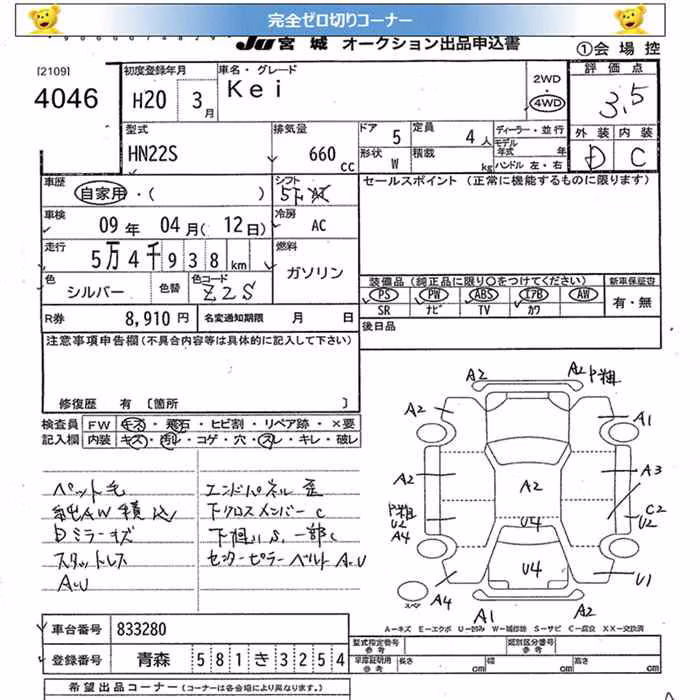 完全ゼロ切りコーナー
JU 宮城 オークション出品申込書
①会場控
[2109]
4046
初度登録年月
H20 3月
車名・グレード
Kei
2WD
・
4WD
評価点
3.5
外装 内装
D C
型式
HN22S
排気量
660 cc
ドア 5
定員 4人
形状 W
積載 kg
ディーラー・並行
モデル年式 年
ハンドル 左・右
車歴
自家用・( )
シフト
5F
セールスポイント (正常に機能するものに限ります)
車検
09年 04月(12日)
冷房
AC
走行
5万4千938km
燃料
ガソリン
色
シルバー
色替
色コード
Z2S
装備品 (純正品に限り○をつけてください)
新車保証書
PS PW ABS エアB AW
SR ナビ TV カワ
有・無
R券 8,910円
名変通知期限 月 日
後日品
注意事項申告欄(不具合内容等は具体的に記入して下さい)
修復歴 有 〔箇所 〕
検査員記入欄
FW キズ・飛石・ヒビ割・リペア跡・×要
内装 キズ・汚れ・コゲ・穴・スレ・キレ・破レ
ペット毛
純AW積込
Dミラーキズ
スタットレス
A・U
エンドパネル歪
下クロスメンバーC
下廻りS、一部C
センターピラーベルトA・U
A2
A2 P粗
A2
A1
A2
A2
A3
P粗
U2
A4
U4
C2
U2
U4
A4
U1
A1
A2
スペア
A=キズ E=エクボ U=凹み W=補修跡 S=サビ C=腐食 XX=交換済
車台番号 833280
登録番号 青森 581 き 3254
型式指定番号
類別区分番号
車庫証明用参考
長さ cm
幅 cm
高さ cm
希望出品コーナー (コーナーは各会場により異なります。)